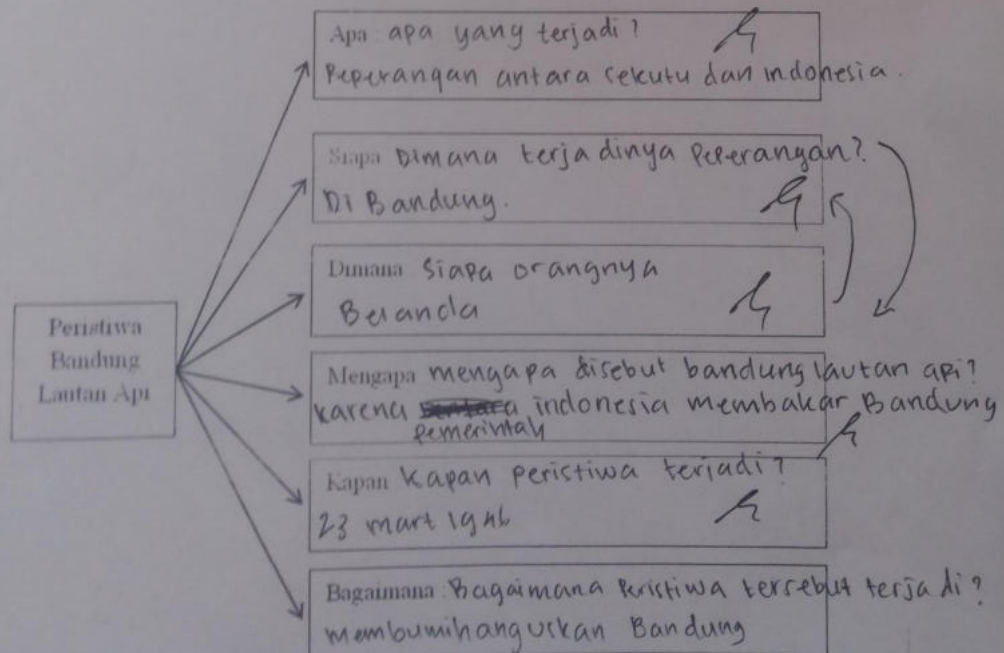 Apa : apa yang terjadi?
Peperangan antara sekutu dan indonesia.
Siapa Dimana terjadinya Peperangan?
Di Bandung.
Dimana Siapa orangnya
Belanda
Peristiwa
Bandung
Lautan Api
Mengapa mengapa disebut bandung lautan api?
karena indonesia membakar Bandung
pemerintah
Kapan Kapan peristiwa terjadi?
23 mart 1946
Bagaimana : Bagaimana Peristiwa tersebut terjadi?
membumihanguskan Bandung